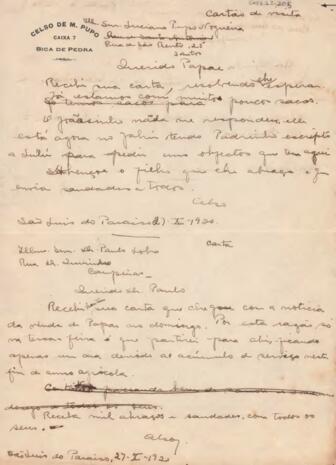 CELSO DE M. PUPO
CAIXA 7
BICA DE PEDRA
Cartão de visita
Illmo. Snr. Luciano Pupo Nogueira
Rua de São Bento, 25
Santos
Querido Papae
Recebi sua carta, resolvendo esperar
Já estamos com muitos poucos sacos.
O Joãosinho nada me respondeu, elle
está agora no Jahú tendo Padrinho escripto
a Lulú para pedir uns objectos que tem aqui
Abençoe o filho que lhe abraça e que
envia saudades a todos.
Celso
São Luis do Paraiso, 27-X-1920.
Carta
Illmo. Snr. Dr. Paulo Lobo
Rua Dr. Quirino
Campinas
Querido Dr. Paulo
Recebi sua carta que chegou com a noticia
da vinda de Papae no domingo. Por esta razão só
na terça feira é que partirei para ahi, ficando
apenas um dia devido ao accúmulo de serviço neste
fim de anno agricola.
Receba mil abraços e saudades, com todos os
seus.
Celso
São Luis do Paraiso, 27-X-1920